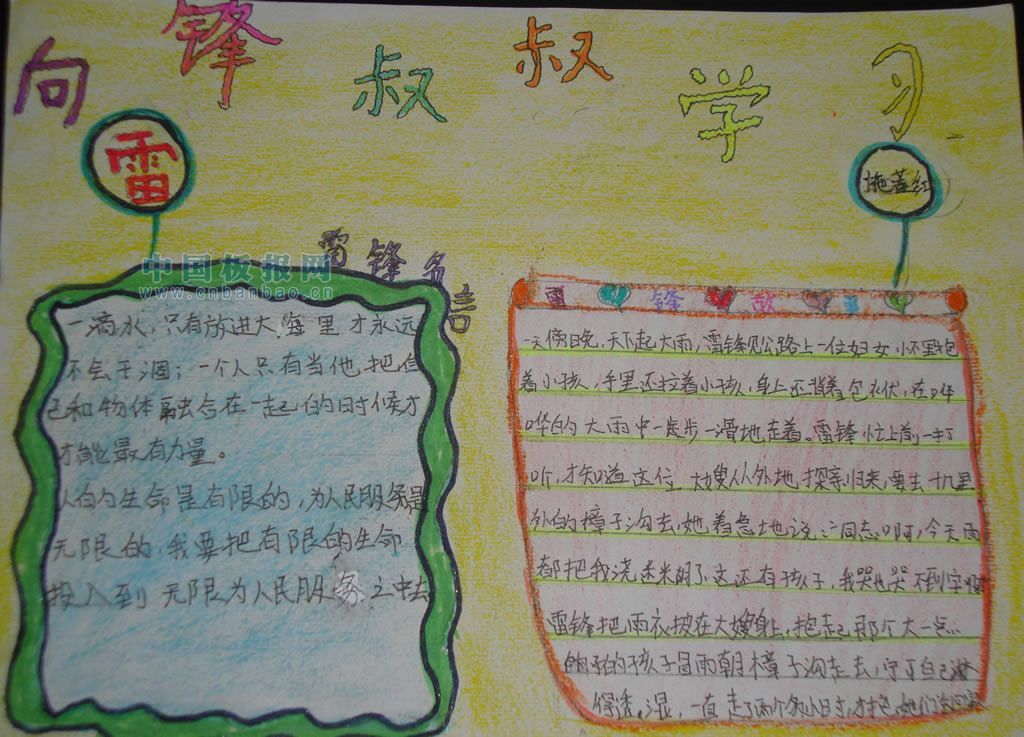 向锋叔叔学习
雷
施蓋红
中国板报网
www.cnbanbao.cn
雷锋名言
一滴水,只有放进大海里才永远
不会干涸;一个人只有当他把自
己和物体融合在一起的时候才
才能最有力量。
人的生命是有限的,为人民服务是
无限的,我要把有限的生命
投入到无限为人民服务之中去
雷锋故事
一天傍晚,天下起大雨,雷锋见公路上一位妇女,怀里抱
着小孩,手里还拉着小孩,身上还背着包衣伏,在哗
哗的大雨中一走步一滑地走着。雷锋忙上前一打
听,才知道这位大嫂从外地探亲归来,要去十几里
外的樟子沟去,她着急地说:同志啊,今天雨
都把我浇迷糊了,这还有孩子,我哭也哭不到家
雷锋把雨衣披在大嫂身上,抱起那个大一点
的孩子冒雨朝樟子沟走去,宁可自己淋
得透湿,一直走了两个多小时,才把她们送回家